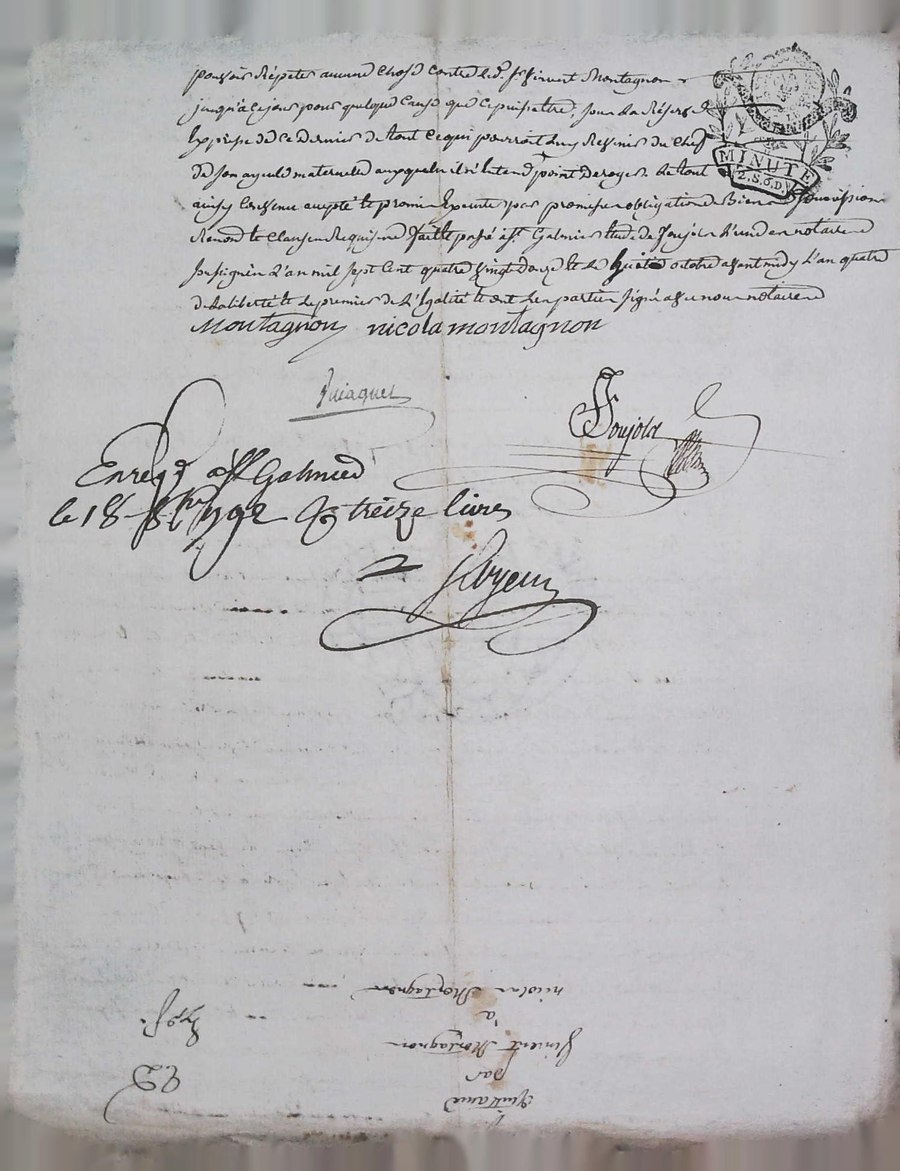 pouvoir Répeter aucune chose contre led. Sr vincent Montagnon
jusqu'a ce jour pour quelque cause que ce puisse etre, sous la Réserve
Expresse de ce dernier de tout ce qui pourroit luy Revenir du chef
de son ayeule maternelle auxquels il n'entend point deroger de tout
ainsy Convenu accepté le promis Executer par promesse obligation de Biens Soumission
Renond. et Clauses Requises fait et passé a St Galmier Etude de Poujola l'un des notaires
soussignés L'an mil sept Cent quatre vingt douze et le huit octobre avant midy L'an quatre
de la liberté et le premier de L'Egalité et ont les parties signé avec nous notaires
Montagnon nicola montagnon
Poujola
Enreg. a St Galmier
le 18 8bre 1792 treize livres
MINUTE
2.S.6.D.
quittance
par
vincent Montagnon
a
nicolas Montagnon